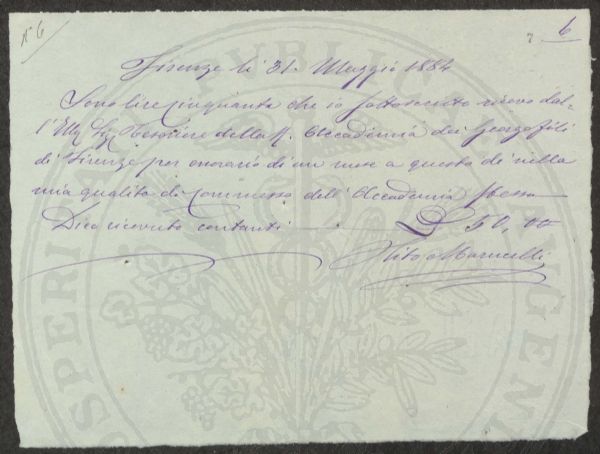 N 6
7 6
Firenze li 31. Maggio 1884
Sono lire cinquanta che io sottoscritto ricevo dal-
l'Ill. Sig. Tesoriere della R. Accademia dei Georgofili
di Firenze per onorario di un mese a questo dì nella
mia qualità di Commesso dell'Accademia stessa
Dico ricevuto contanti — £ 50,00
Marucelli
PUBLICA
PROSPERITATI
AUGENDAE